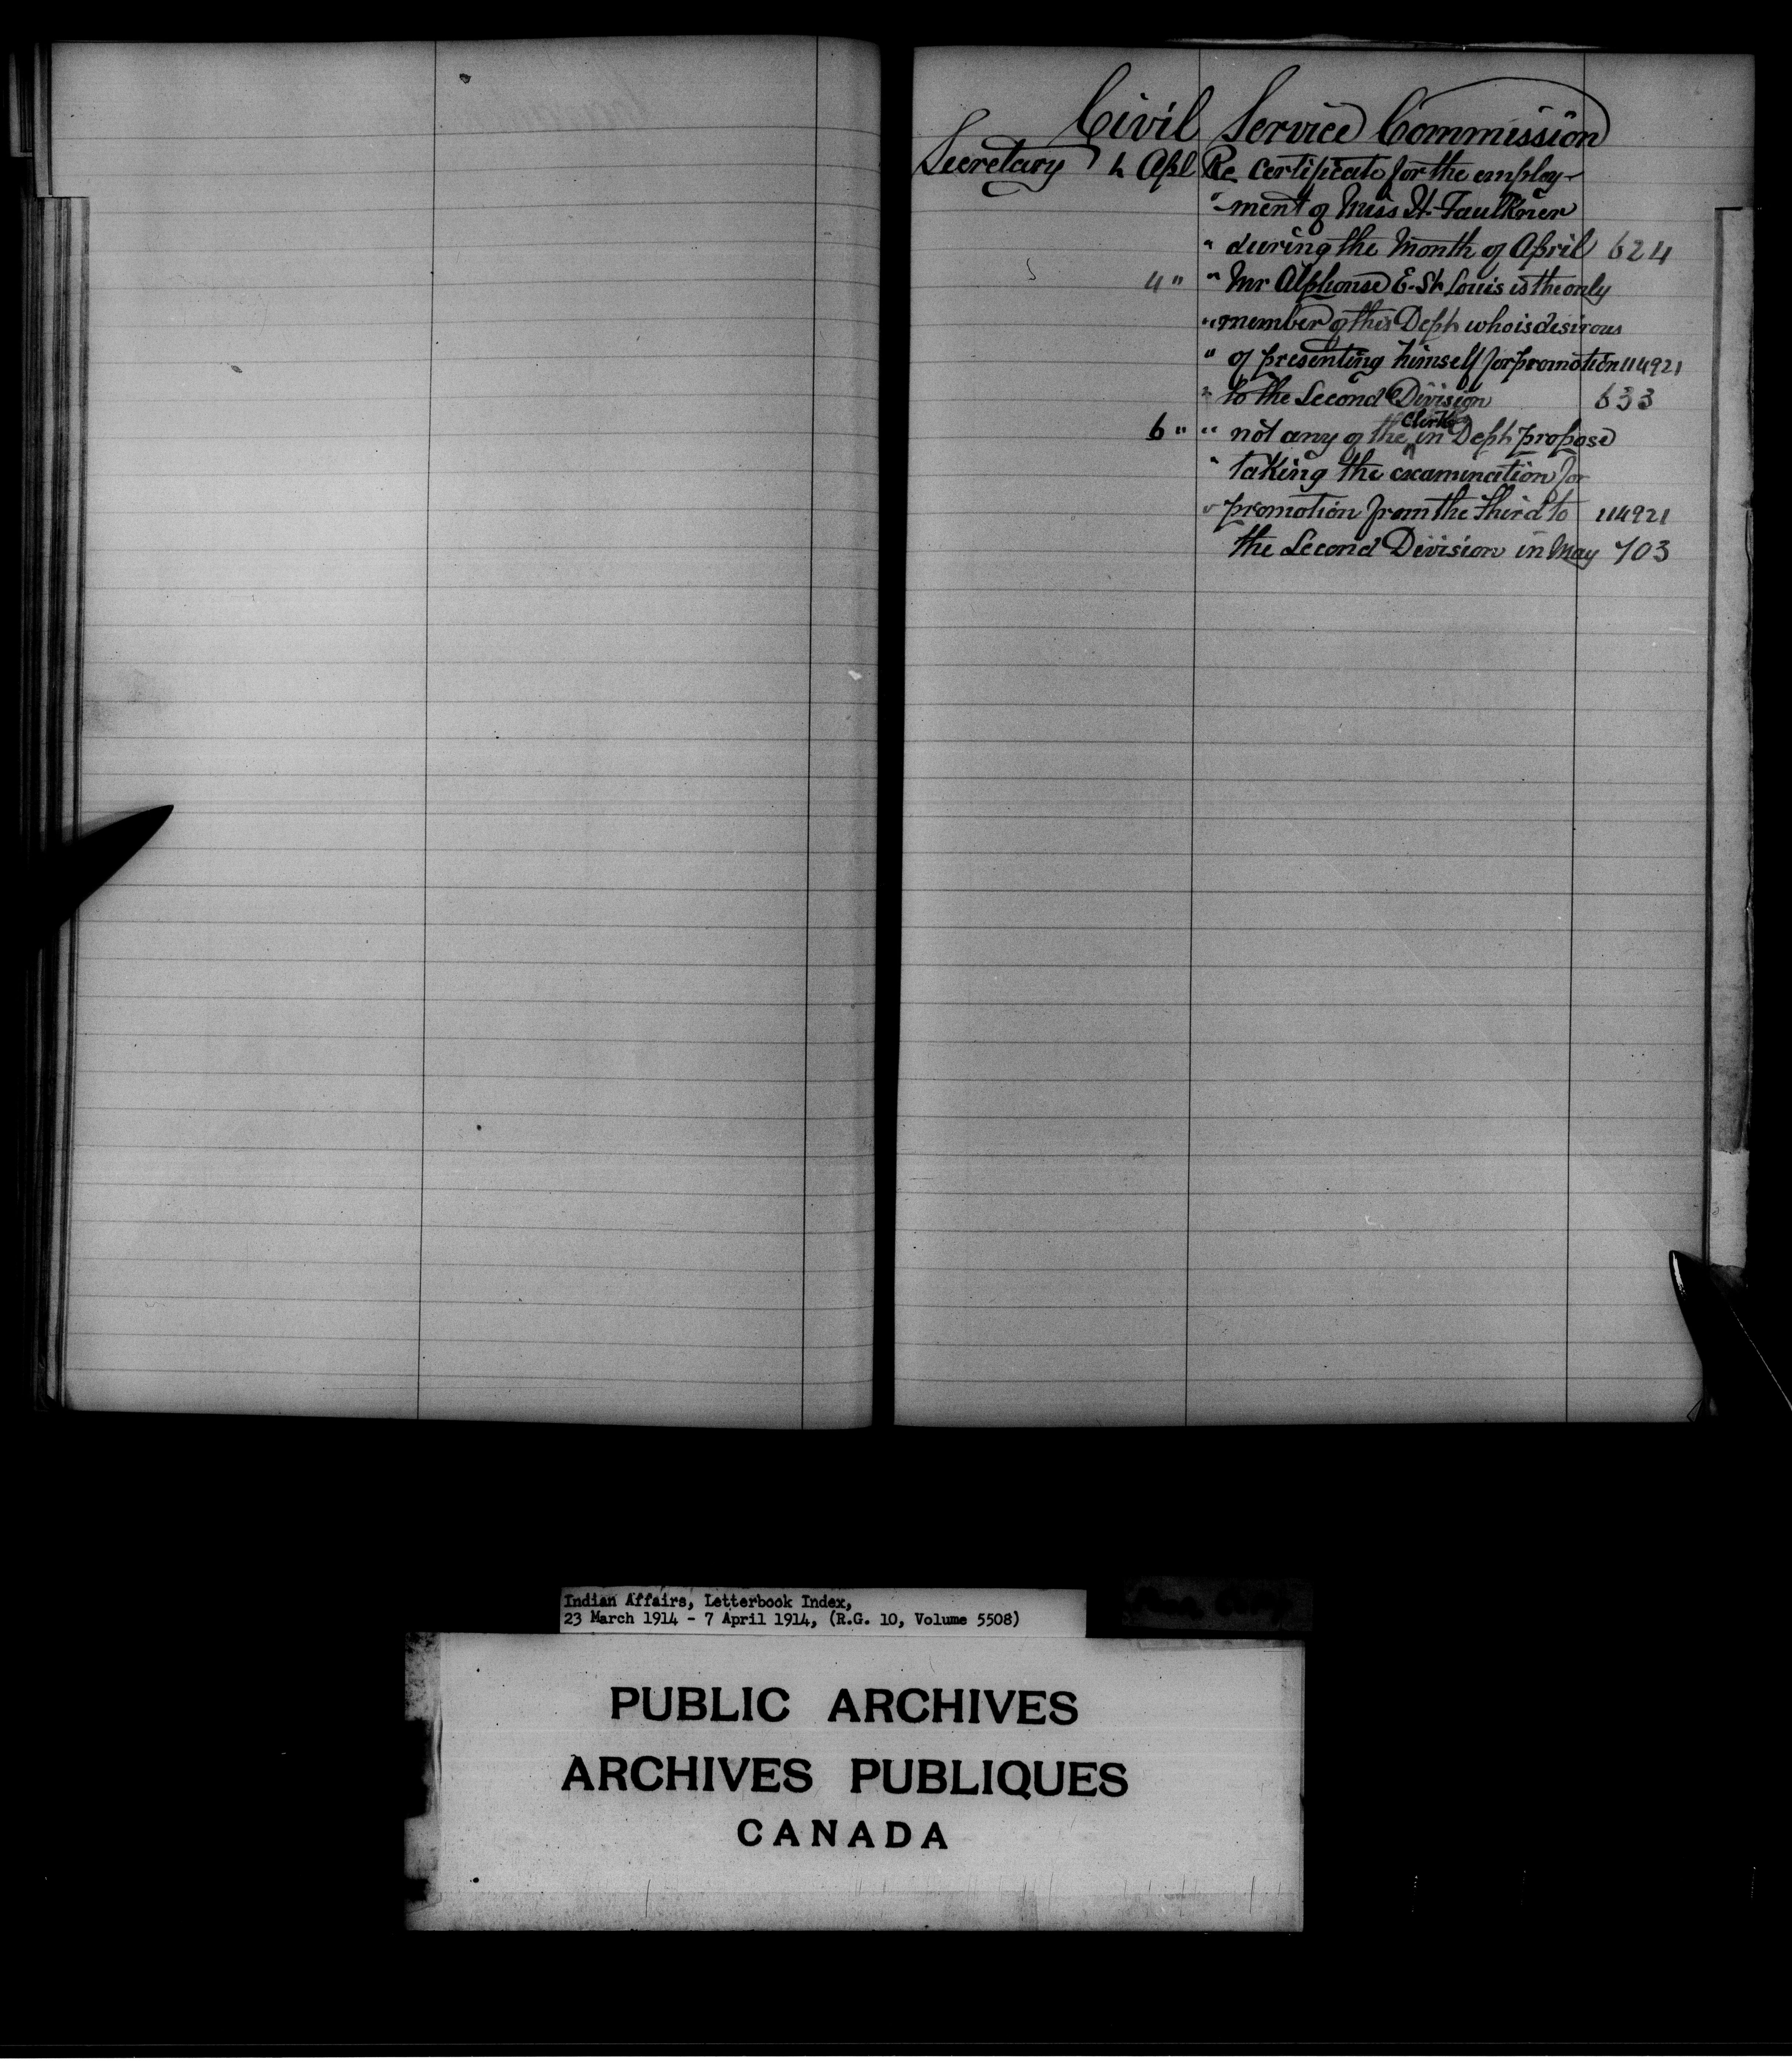 Civil Service Commission
Secretary 4 Apl Re Certificate for the employ-
"-ment of Miss H. Faulkner
" during the Month of April 624
4 " " Mr Alphonse E. St Louis is the only
" member of this Dept who is desirous
" of presenting himself for promotion 114921
" to the Second Division 633
6 " " not any of the Clerks in Dept propose
" taking the examination for
" promotion from the third to 114921
the Second Division in May 703
Indian Affairs, Letterbook Index,
23 March 1914 - 7 April 1914, (R.G. 10, Volume 5508)
PUBLIC ARCHIVES
ARCHIVES PUBLIQUES
CANADA